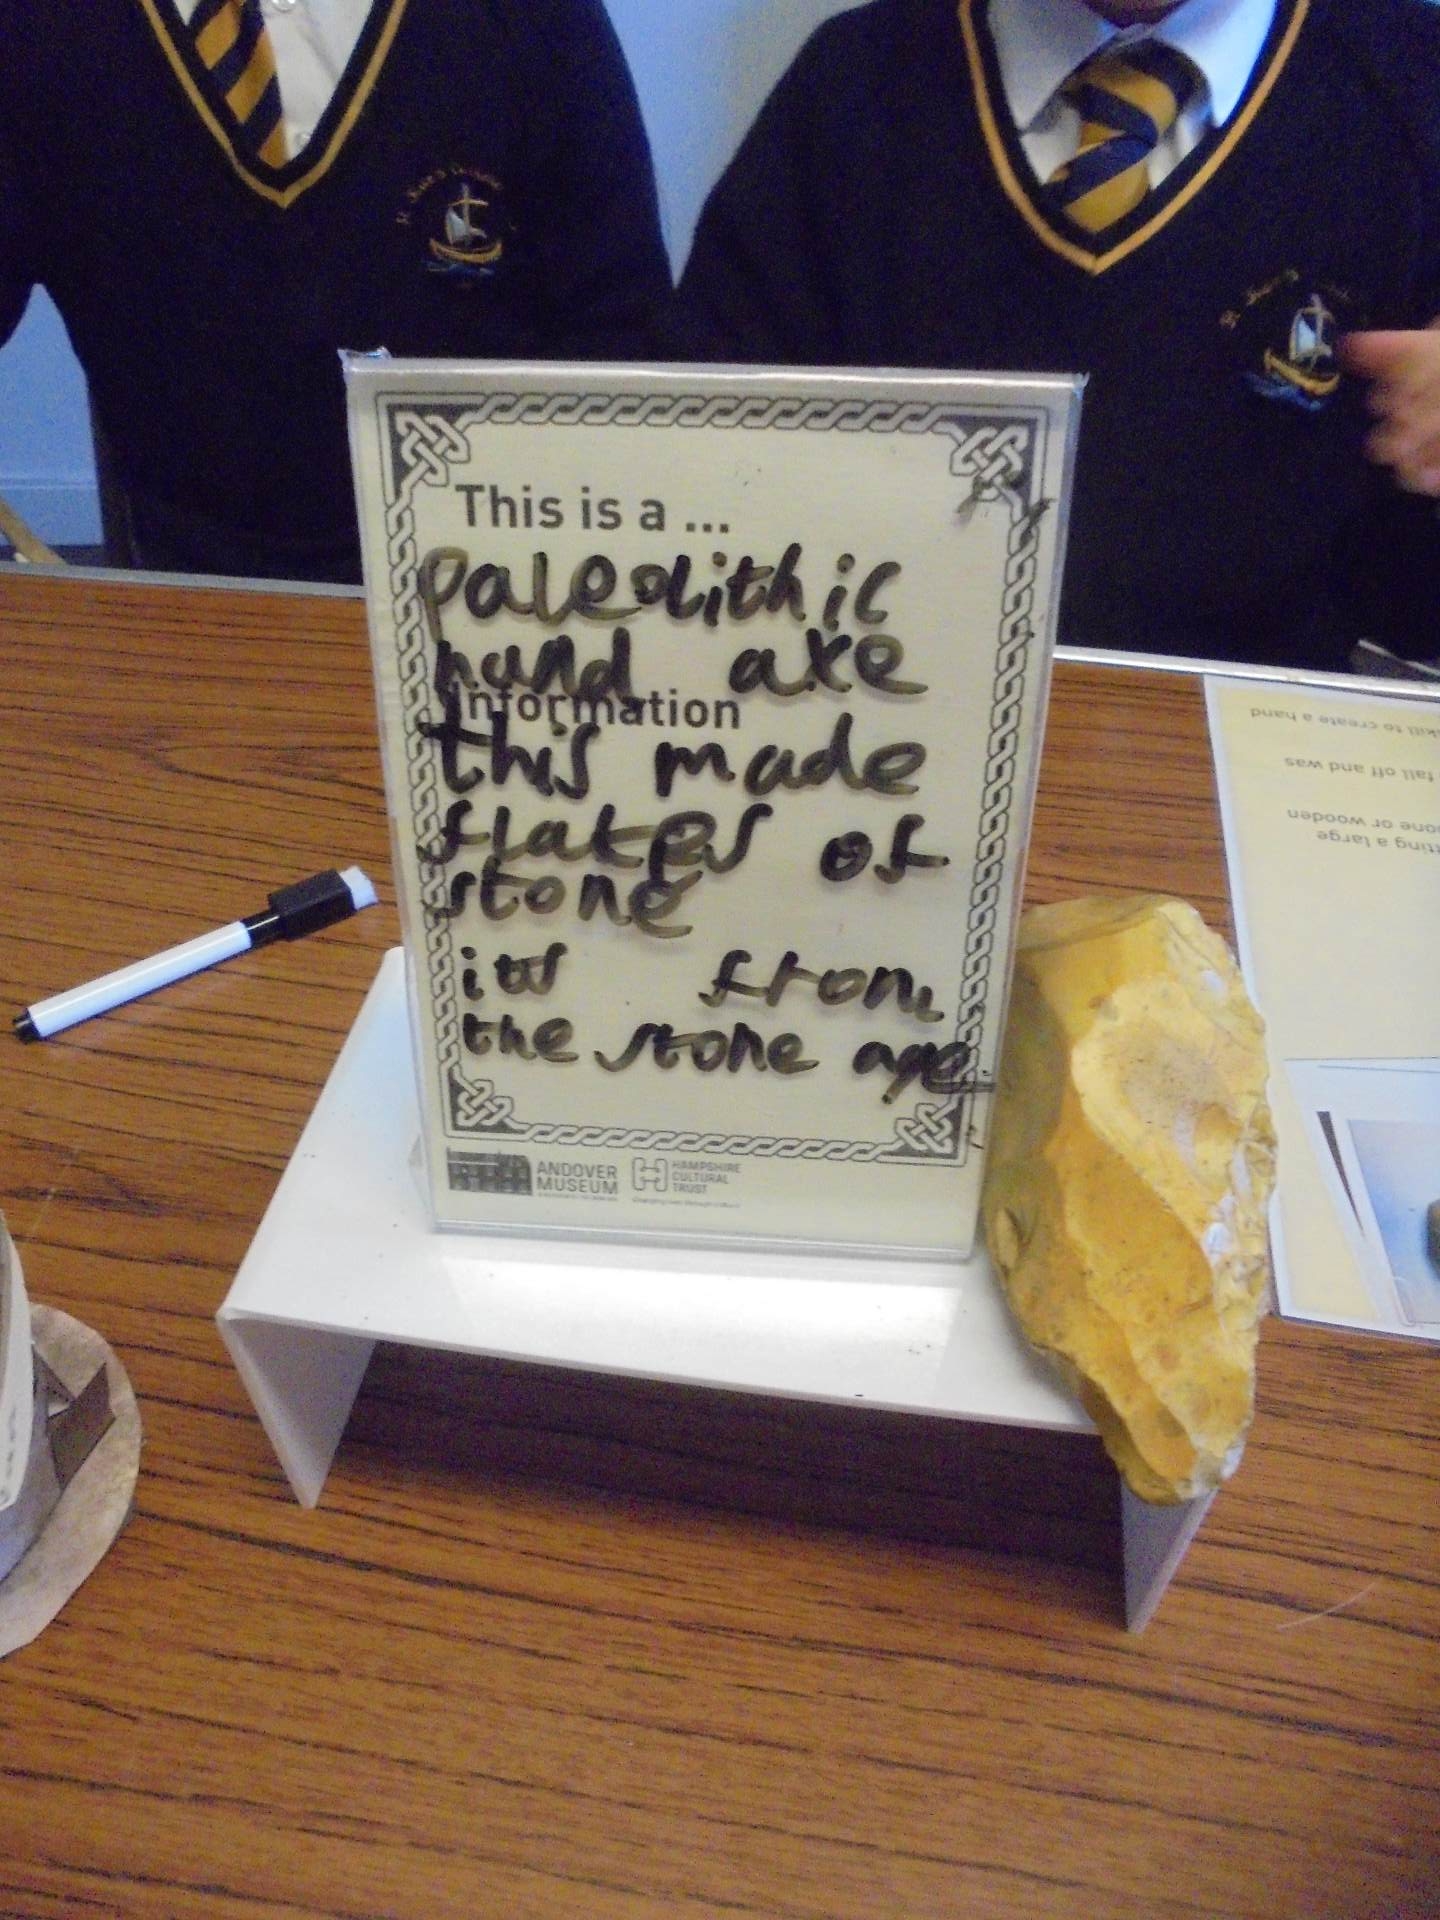 This is a ...
paleolithic
hand axe
Information
this made
flakes of
stone
its from
the stone age
ANDOVER
MUSEUM
HAMPSHIRE
CULTURAL
TRUST
skill to create a hand
fall off and was
bone or wooden
tting a large